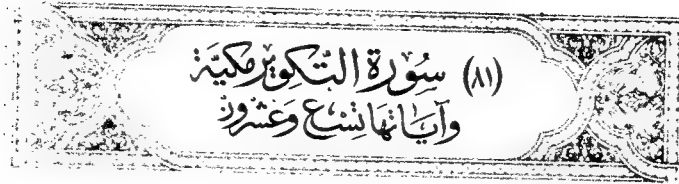 (٨١) سُورَة التَّكوِير مَكيَّة
وَآيَاتهَا تِسْع وَعشْرُون